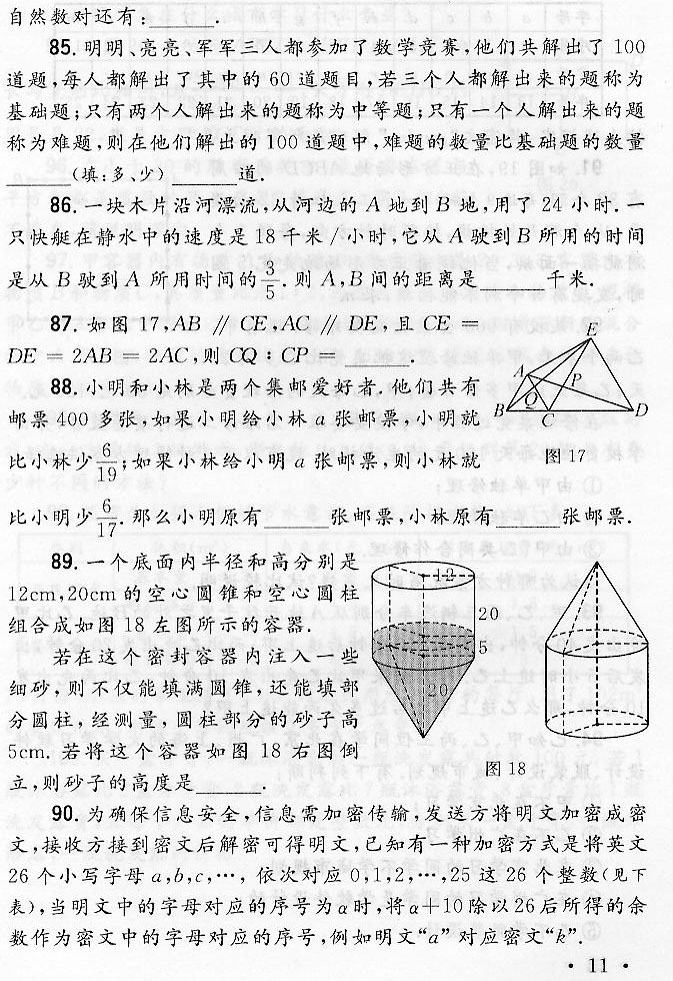 自然数对还有:______.
85.明明、亮亮、军军三人都参加了数学竞赛,他们共解出了 100
道题,每人都解出了其中的 60 道题目,若三个人都解出来的题称为
基础题;只有两个人解出来的题称为中等题;只有一个人解出来的题
称为难题,则在他们解出的 100 道题中,难题的数量比基础题的数量
______(填:多、少)______道.
86.一块木片沿河漂流,从河边的 A 地到 B 地,用了 24 小时.一
只快艇在静水中的速度是 18 千米/小时,它从 A 驶到 B 所用的时间
是从 B 驶到 A 所用时间的 3/5. 则 A,B 间的距离是______千米.
87.如图 17,AB // CE,AC // DE,且 CE =
DE = 2AB = 2AC,则 CQ : CP = ______.
88.小明和小林是两个集邮爱好者.他们共有
邮票 400 多张,如果小明给小林 a 张邮票,小明就
比小林少 6/19;如果小林给小明 a 张邮票,则小林就
比小明少 6/17. 那么小明原有______张邮票,小林原有______张邮票.
E
A
P
Q
B
C
D
图 17
89.一个底面内半径和高分别是
12cm,20cm 的空心圆锥和空心圆柱
组合成如图 18 左图所示的容器.
若在这个密封容器内注入一些
细砂,则不仅能填满圆锥,还能填部
分圆柱,经测量,圆柱部分的砂子高
5cm. 若将这个容器如图 18 右图倒
立,则砂子的高度是______.
12
20
5
20
图 18
90.为确保信息安全,信息需加密传输,发送方将明文加密成密
文,接收方接到密文后解密可得明文,已知有一种加密方式是将英文
26 个小写字母 a,b,c,…, 依次对应 0,1,2,…,25 这 26 个整数(见下
表),当明文中的字母对应的序号为 α 时,将 α+10 除以 26 后所得的余
数作为密文中的字母对应的序号,例如明文“a”对应密文“k”.
· 11 ·